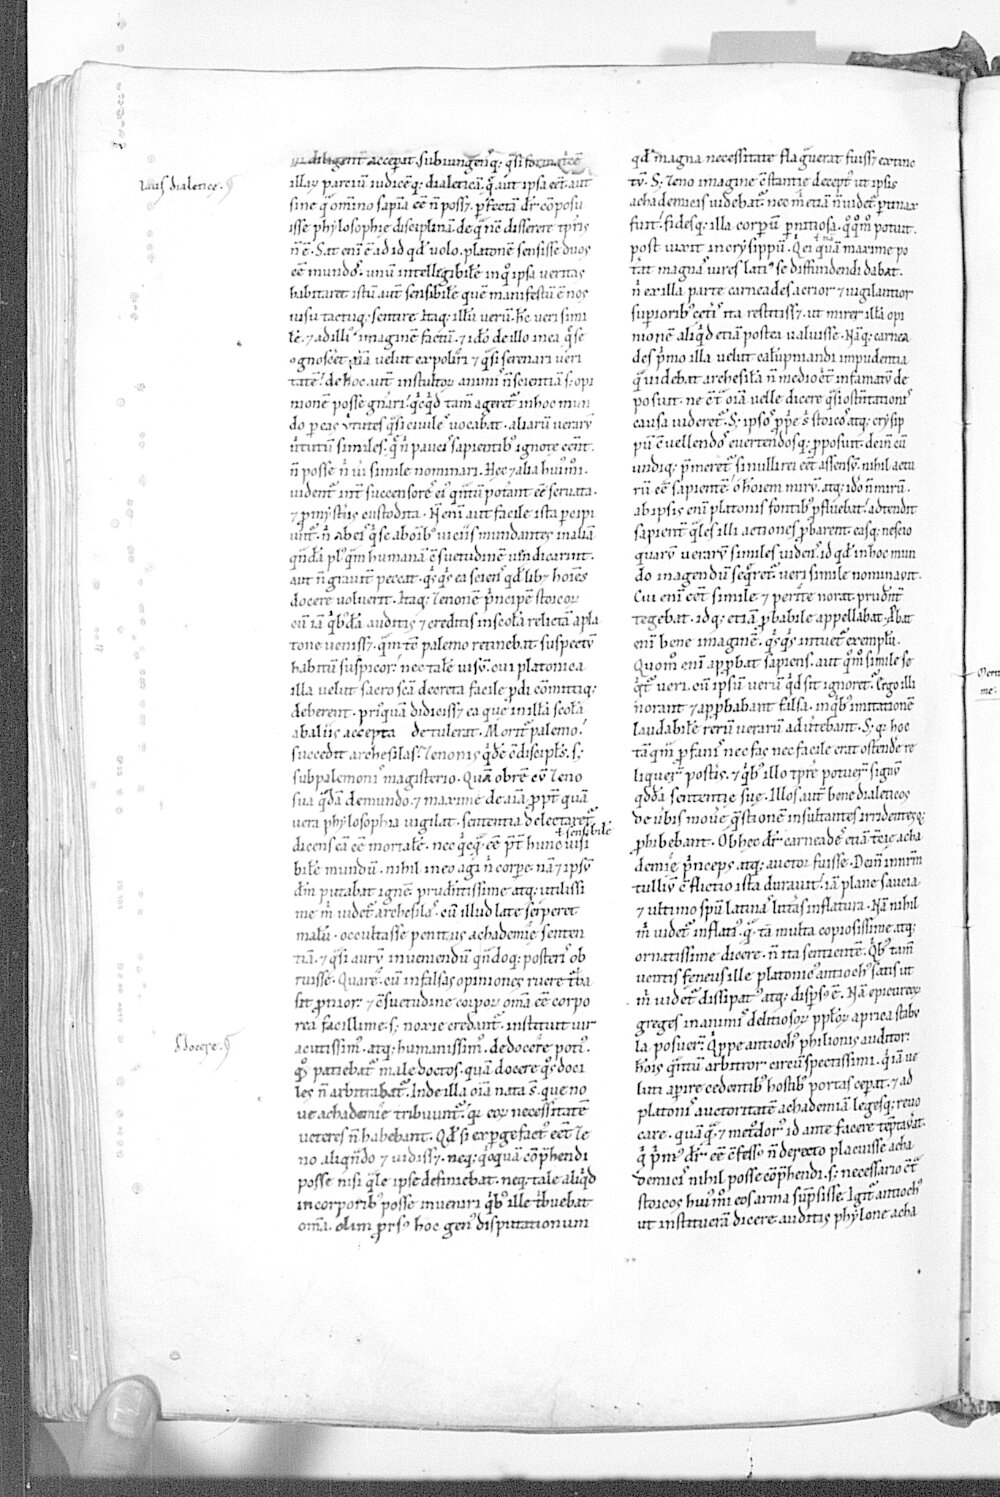 Laus dialetice.
in diligent̄ acceperat. subiungenq;ᷤ qͣsi formatͥcē
illarͫ parciū iudicēq; dialeticā. q̄ aut ipsa eēt. aut
sine q̄ om̄ino sapīa eē ñ possꝫ. ꝑfectā dr̄ cōposu
isse phylosophie disciplinā. de q̄ nē disserere tꝑris
ñ ē. Sat enī ē ad id qd̓ volo. platonē sensisse duos
eē mundoˢ. unū intellegibilē inqͦ ipsa veritas
habitaret istū aut̄ sensibilē quē manifestū ē nos
uisu tactuq; sentire. Itaq; illū verū. h̄c veri simi
lē. ⁊ ad illiꝰ imaginē factū. ⁊ idō de illo in ea q̄ se
ognoscēt aīa velut expoliri ⁊ qͣsi serenari veri
tatē. de hoc aut̄ in stultoꝝ animiˢ ñ scientiā sꝫ opi
nionē posse gnari. qͥcqͥd tam̄ ageret in hoc mun
do per eas virtutes qͣsi civileˢ vocabat. aliarū verarū
virtutū similes. q̄ ñ pauciˢ sapientibꝰ ignote eēnt.
ñ posse ñ uī simile nominari. Hec ⁊ alia huiꝰmoi.
vident̄ int̄ successoreˢ eiꝰ qͣntū poterant eē servata.
⁊ ꝑ mysteriis custodita. Ñ enī aut facile ista percipi
unt̄. ñ ab eiˢ q̄ se ab omibꝰ uiciis mundantes in aliā
qͣndā plꝰ qͣm humanā ꝯsuetudinē vindicarint.
aut ñ graviter peccat. qͥsqͥs ea sciens qd̓libꝫ hoīes
docere voluerit. Itaq; zenonē pͥncipē stoicoꝝ
cū iā qͥbꝰdā auditis ⁊ creditis in scolā relictā a pla
tone venissꝫ. qͣm tē palemo retinebat suspectū
habitū suspicor. nec talē uisū. cui platonica
illa velut sacro sc̄a decreta facile ꝓdi cōmittiq;
deberent. priusquā didicissꝫ ea que in illā scolā
ab aliis accepta detulerat. Moritꝰ palemo.
succedit archesilas. zenonis qͥdē ꝯdiscipl̄s. sꝫ
sub palemoniˢ magisterio. Quā obrē cū zeno
sua qͣdā de mundo. ⁊ maxime de aīa. ꝓpt̄ quā
vera phylosophia vigilat. sententia delectaretͬ
ł sensibilē
dicens eā eē mortalē. nec qͥcqͣ eē p̄t̄ hunc visi
bilē mundū. nihil in eo agi ñ corpe. nā ⁊ ipsū
dm̄ putabat ignē. prudentissime atq; utilissi
me m̄ videtͬ archesilas. cū illud late serperet
malū. occultasse penitus achademie senten
tiā. ⁊ qͣsi aurū inveniendū qn̄doq; posteriˢ ob
ruisse. Quare cū in falsas opiniones ruere tͥba
sit ꝓnior. ⁊ ꝯsuetudine corpoꝝ om̄a eē corpo
rea facillime. sꝫ noxie credantͬ. instituit vir
Docere.
acutissimꝰ. atq; humanissimꝰ. dedocere potiꝰ.
q̊s patiebat male doctos. quā docere q̊s doci
les ñ arbitrabatͬ. Inde illa oīa nata s̄. que no
ve achademie tribuunt̄. qͥ eoꝝ necessitatē
veteres ñ habebant. Qd̓ si exꝑgefactꝰ eēt ze
no aliqn̄do ⁊ vidissꝫ. neq; qͥcquā cōprehendi
posse nisi qͣle ipse definiebat. neq; tale aliqͥd
in corporibꝰ posse inveniri qͥbꝰ ille tͥbuebat
om̄a. olim ꝓrsꝰ hoc genꝰ disputationum
qd̓ magna necessitate flagͣverat fuissꝫ extinc
tū. Sꝫ zeno imagine ꝯstantie deceptꝰ ut ipsis
achademicis videbatͬ. nec m̄ etiā ñ videtͬ ꝑtinax
fuit. fidesq; illa corporū ꝑnitiosa. qͦqͦmͦ potuit.
post vixit in crysippū. Qͥ ei quā maxime po
terat magnaˢ vires latiꝰ se diffundendi dabat.
ñ ex illa parte carneades acrior ⁊ vigilantior
superioribꝰ ceteriˢ ita restitissꝫ. ut mirer illā opi
nionē aliqͥd etiā postea valuisse. Nāq; carnea
des pͥmo illa velut calūpniandi impudentia
qͣ videbat archesilā ñ mediocrit̄ infamatū de
posuit. ne ꝯt̄ oīa velle dicere qͣsi ostentationiˢ
causa videretͬ. Sꝫ ipsoˢ ꝓp̄e sͥ stoicoˢ atq; crysip
pū ꝯvellendoˢ evertendosq; ꝓposuit. dein̄ cū
undiq; pͥmeretͬ si nulli rei eēt assensū. nihil actu
rū eē sapientē. o hoīem mirū. atq; idō ñ mirū.
ab ipsis enī platonis fontibꝰ ꝓfluebat. adtendit
sapient̄ qͣles illi actiones ꝓbarent. easq; nescio
quarū verarū similes videns. id qd̓ in hoc mun
do in agendū seqͣretͬ. veri simile nominavit.
Cui enī eēt simile ⁊ perite norat prudent̄
tegebat. idq; etiā ꝓbabile appellabat. ꝓbat
enī bene imaginē. qͥsqͥs intuetͬ exemplū.
Quomͦ enī approbat sapiens. aut qͦmͦ simile se
qͥtͬ veri. cū ipsū verū qd̓ sit ignoret. Ergo illi
norant ⁊ approbabant falsa. in qͥbꝰ imitationē
laudabilē rerū verarū advertebant. Sꝫ qͥ hoc
tāqͣm ꝓfaniˢ nec fas nec facile erat ostendere re
liquerͬ posteris. ⁊ qͥbꝰ illo tꝑre potuerͬ signū
qͦddā sententie sue. Illos aut̄ bene dialeticos
de verbis movere qͣstionē insultantes irridentesq;
ꝓhibebant. Ob hec dr̄ carneadeˢ etiā t̄cie acha
demie pͥnceps atq; auctor fuisse. Dein̄ in nr̄m
tulliū ꝯflictio ista duravit. iā plane saucia
⁊ ultimo spū latinaˢ litt̄as inflatura. Nā nihil
m̄ videtͬ inflatiꝰ. qͣ tā multa copiosissime atq;
ornatissime dicere. ñ ita sentientē. Qͥbꝰ tam̄
ventis feneus ille platonicꝰ antiochꝰ satis ut
m̄ videtͬ dissipatꝰ atq; dispersꝰ ē. Nā epicureoꝝ
greges in animiˢ delitiosoꝝ ppl̄oꝝ aprica stabu
la posuerͬ. Qͥppe antiochꝰ philonis auditor.
hoīs qͣntū arbitror circūspectissimi. qͥ iā ve
luti aperire cedentibꝰ hostibꝰ portas ceperat. ⁊ ad
platoniˢ auctoritatē achademiā legesq; revo
care. quāqͣ. ⁊ metrodorꝰ id ante facere temptaverat.
qͥ pͥmꝰ dr̄ eē ꝯfessꝰ ñ decreto placuisse acha
demiciˢ nihil posse cōprehendi. sꝫ necessario ꝯt̄
stoicos huiꝰmoi eos arma supsisse. Igitͬ antiochꝰ
ut institueram dicere auditis phylone acha